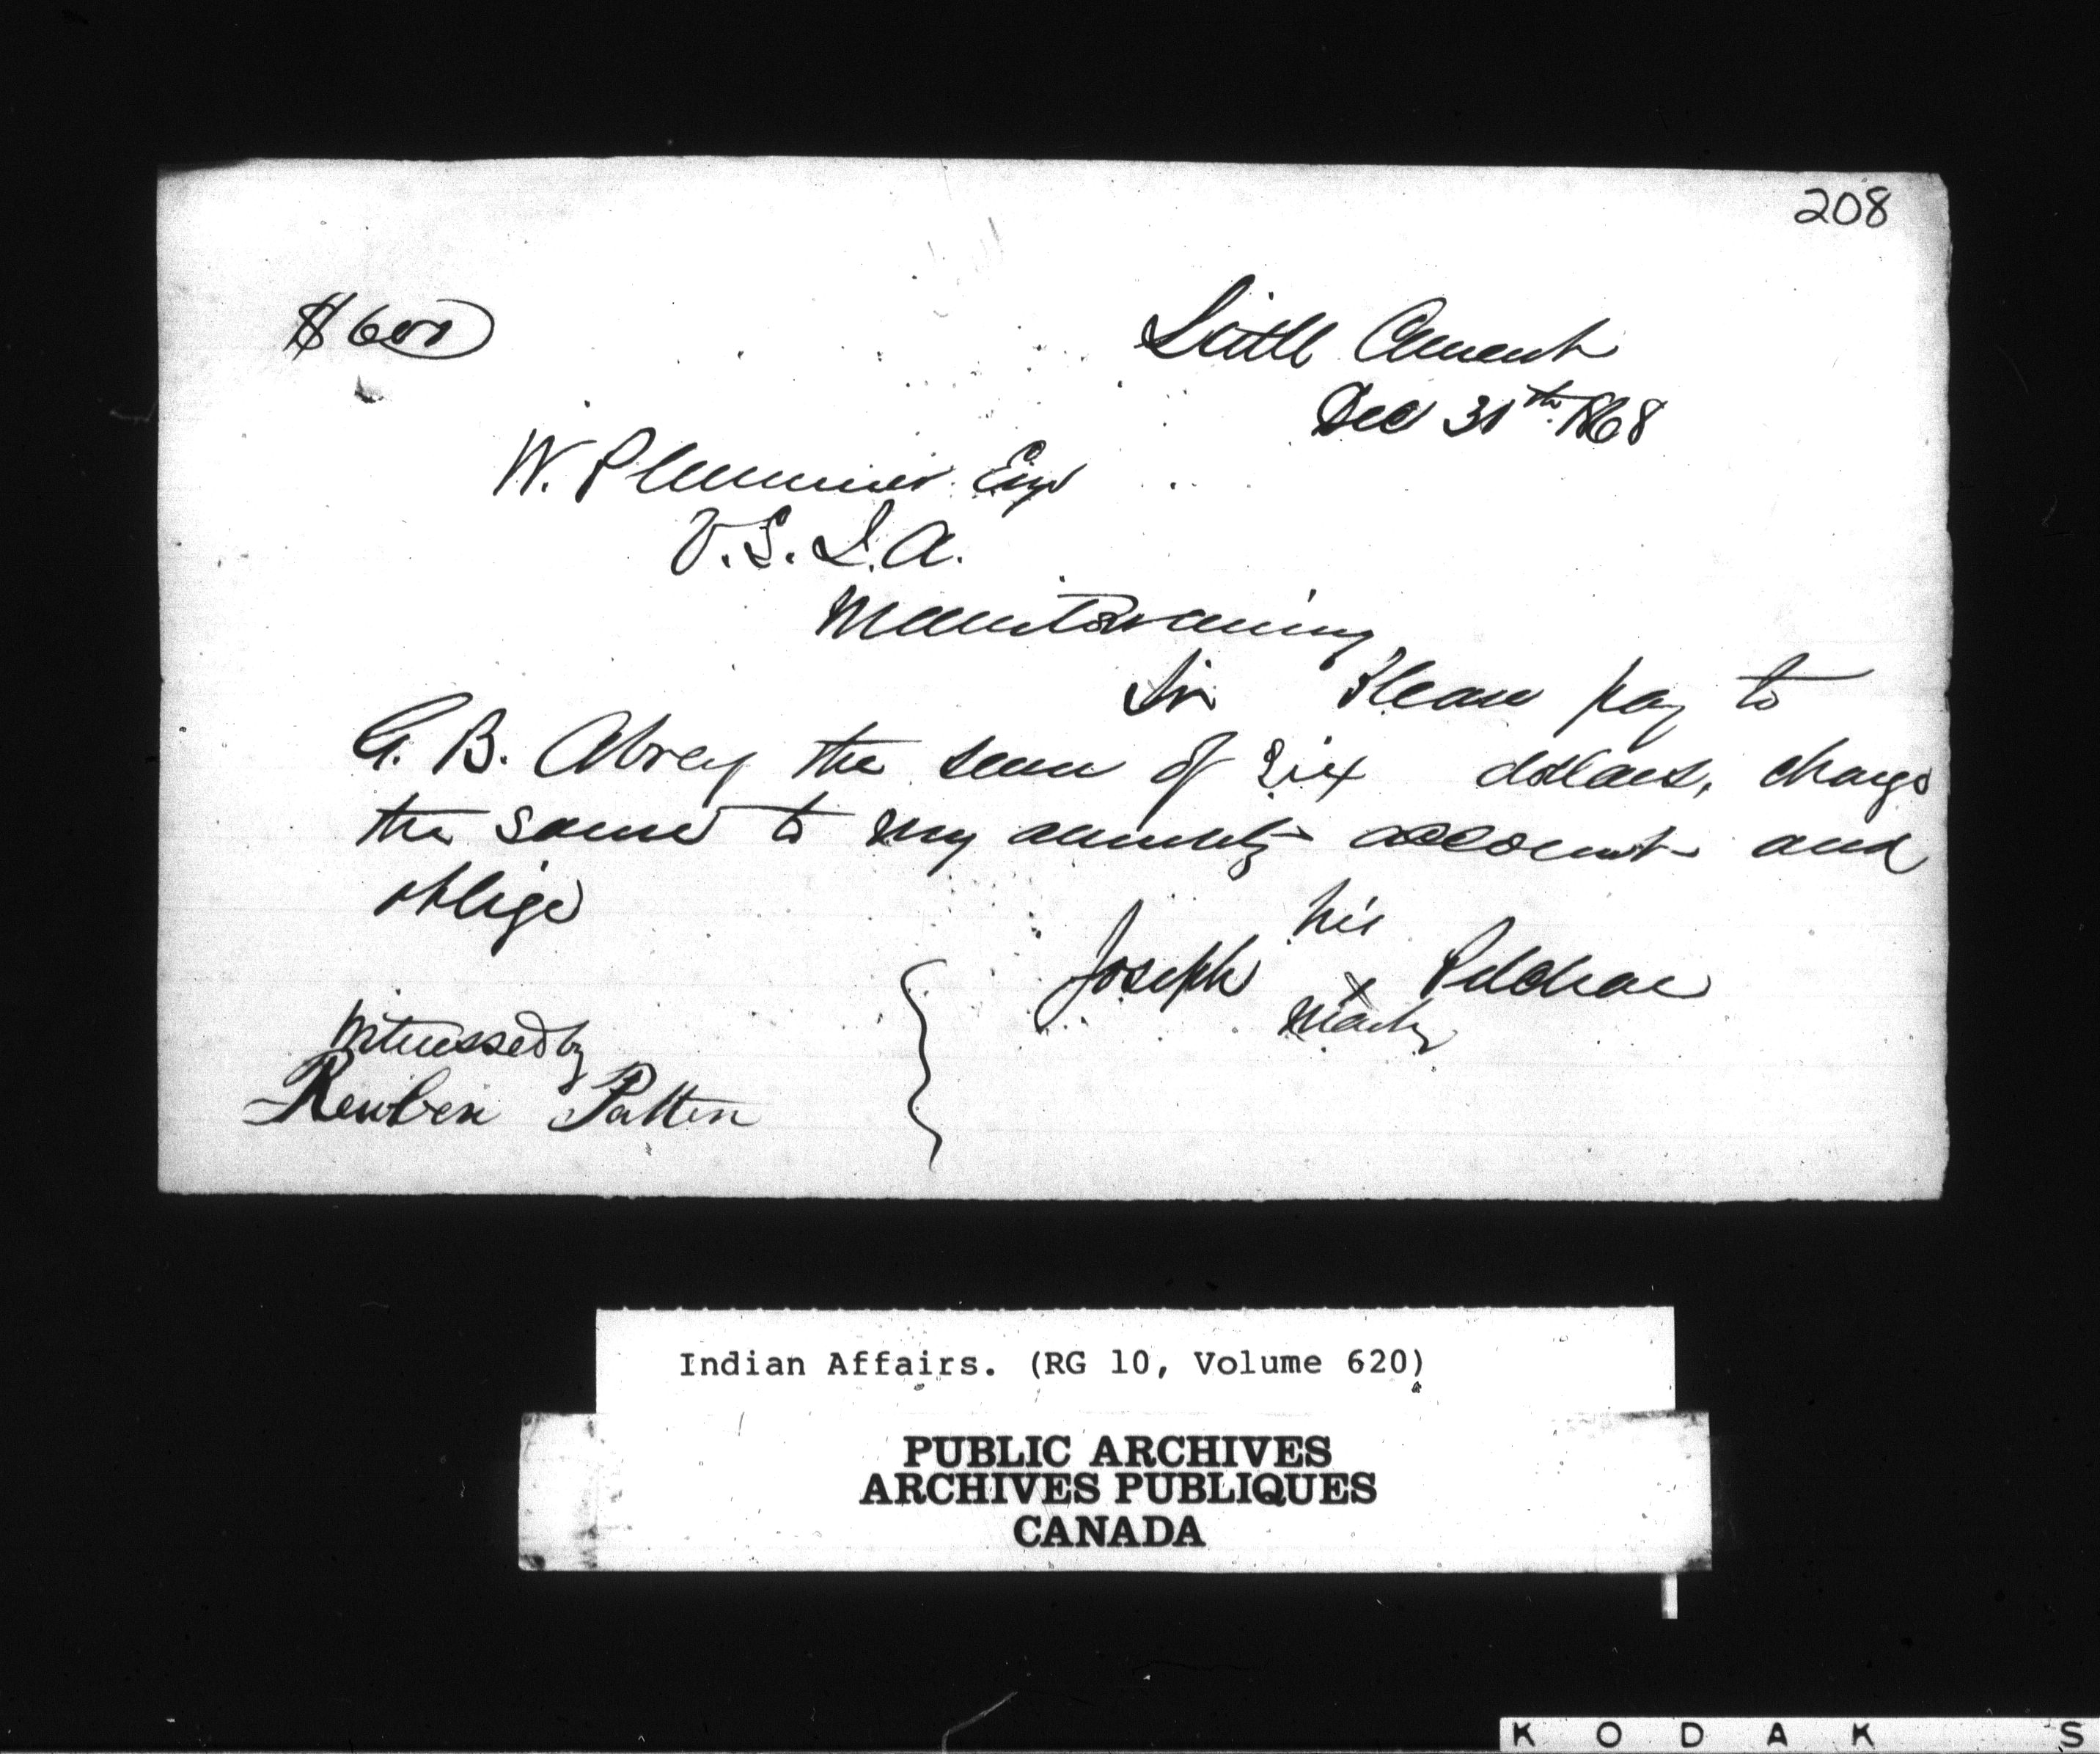 208
$6.00
Little Current
Dec 31th 1868
W. Plummer Esqr
V. S. I. A.
Manitowaning
Sir Please pay to
G. B. Abrey the sum of Six dollars, charge
the same to my annuity account and
oblige
his
Joseph X
mark
Witnessed by
Reuben Patten
Indian Affairs. (RG 10, Volume 620)
PUBLIC ARCHIVES
ARCHIVES PUBLIQUES
CANADA
KODAK S